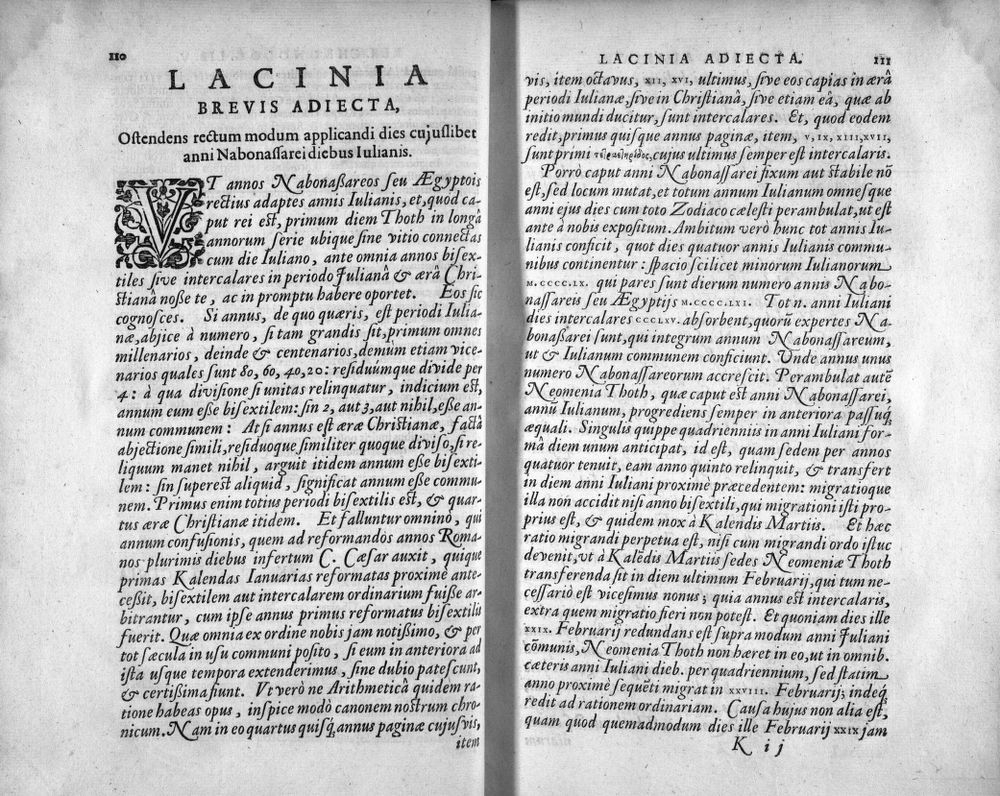 110
LACINIA
BREVIS ADIECTA,
Ostendens rectum modum applicandi dies cujuslibet
anni Nabonassarei diebus Iulianis.
VT annos Nabonaßareos seu Ægyptois
rectius adaptes annis Iulianis, et, quod ca-
put rei est, primum diem Thoth in longâ
annorum serie ubique sine vitio connectas
cum die Iuliano, ante omnia annos bisex-
tiles sive intercalares in periodo Julianâ & ærâ Chri-
stianâ noße te, ac in promptu habere oportet. Eos sic
cognosces. Si annus, de quo quæris, est periodi Iulia-
næ, abjice à numero, si tam grandis sit, primum omnes
millenarios, deinde & centenarios, demùm etiam vice-
narios quales sunt 80, 60, 40, 20: residuúmque divide per
4: à qua divisione si unitas relinquatur, indicium est,
annum eum eße bisextilem: sin 2, aut 3, aut nihil, eße an-
num communem: At si annus est æræ Christianæ, factâ
abjectione simili, residuoque similiter quoque diviso, si re-
liquum manet nihil, arguit itidem annum eße bisexti-
lem: sin superest aliquid, significat annum eße commu-
nem. Primus enim totius periodi bisextilis est, & quar-
tus æræ Christianæ itidem. Et falluntur omnino, qui
annum confusionis, quem ad reformandos annos Roma-
nos plurimis diebus infertum C. Cæsar auxit, quique
primas Kalendas Ianuarias reformatas proximè ante-
ceßit, bisextilem aut intercalarem ordinarium fuiße ar-
bitrantur, cum ipse annus primus reformatus bisextilis
fuerit. Quæ omnia ex ordine nobis jam notißimo, & per
tot sæcula in usu communi posito, si eum in anteriora ad
ista usque tempora extenderimus, sine dubio patescunt,
& certißima fiunt. Vt verò ne Arithmeticâ quidem ra-
tione habeas opus, inspice modò canonem nostrum chro-
nicum. Nam in eo quartus quisq; annus paginæ cujusvis,
item
LACINIA ADIECTA.
111
vis, item octavus, XII, XVI, ultimus, sive eos capias in ærâ
periodi Iulianæ, sive in Christianâ, sive etiam eâ, quæ ab
initio mundi ducitur, sunt intercalares. Et, quod eodem
redit, primus quisque annus paginæ, item, V, IX, XIII, XVII,
sunt primi cujus ultimus semper est intercalaris.
Porrò caput anni Nabonassarei fixum aut stabile nō
est, sed locum mutat, et totum annum Iulianum omnesque
anni ejus dies cum toto Zodiaco cælesti perambulat, ut est
ante à nobis expositum. Ambitum verò hunc tot annis Iu-
lianis conficit, quot dies quatuor annis Iulianis commu-
nibus continentur: spacio scilicet minorum Iulianorum
M.CCCC.LX. qui pares sunt dierum numero annis Nabo-
nassareis seu Ægyptijs M.CCCC.LXI. Tot n. anni Iuliani
dies intercalares CCCLXV. absorbent, quorū expertes Na-
bonassarei sunt, qui integrum annum Nabonassareum,
ut & Iulianum communem conficiunt. Unde annus unus
numero Nabonassareorum accrescit. Perambulat autē
Neomenia Thoth, quæ caput est anni Nabonassarei,
annū Iulianum, progrediens semper in anteriora passuq;
æquali. Singulis quippe quadrienniis in anni Iuliani for-
mâ diem unum anticipat, id est, quam sedem per annos
quatuor tenuit, eam anno quinto relinquit, & transfert
in diem anni Iuliani proximè præcedentem: migratioque
illa non accidit nisi anno bisextili, qui migrationi isti pro-
prius est, & quidem mox à Kalendis Martiis. Et hæc
ratio migrandi perpetua est, nisi cum migrandi ordo istuc
devenit, ut à Kalēdis Martiis sedes Neomeniæ Thoth
transferenda sit in diem ultimum Februarij, qui tum ne-
cessariò est vicesimus nonus; quia annus est intercalaris,
extra quem migratio fieri non potest. Et quoniam dies ille
XXIX. Februarij redundans est supra modum anni Juliani
cōmunis, Neomenia Thoth non hæret in eo, ut in omnib.
cæteris anni Iuliani dieb. per quadriennium, sed statim
anno proximè sequēti migrat in XXVIII. Februarij; indeq;
redit ad rationem ordinariam. Causa hujus non alia est,
quam quod quemadmodum dies ille Februarij XXIX jam
K ij